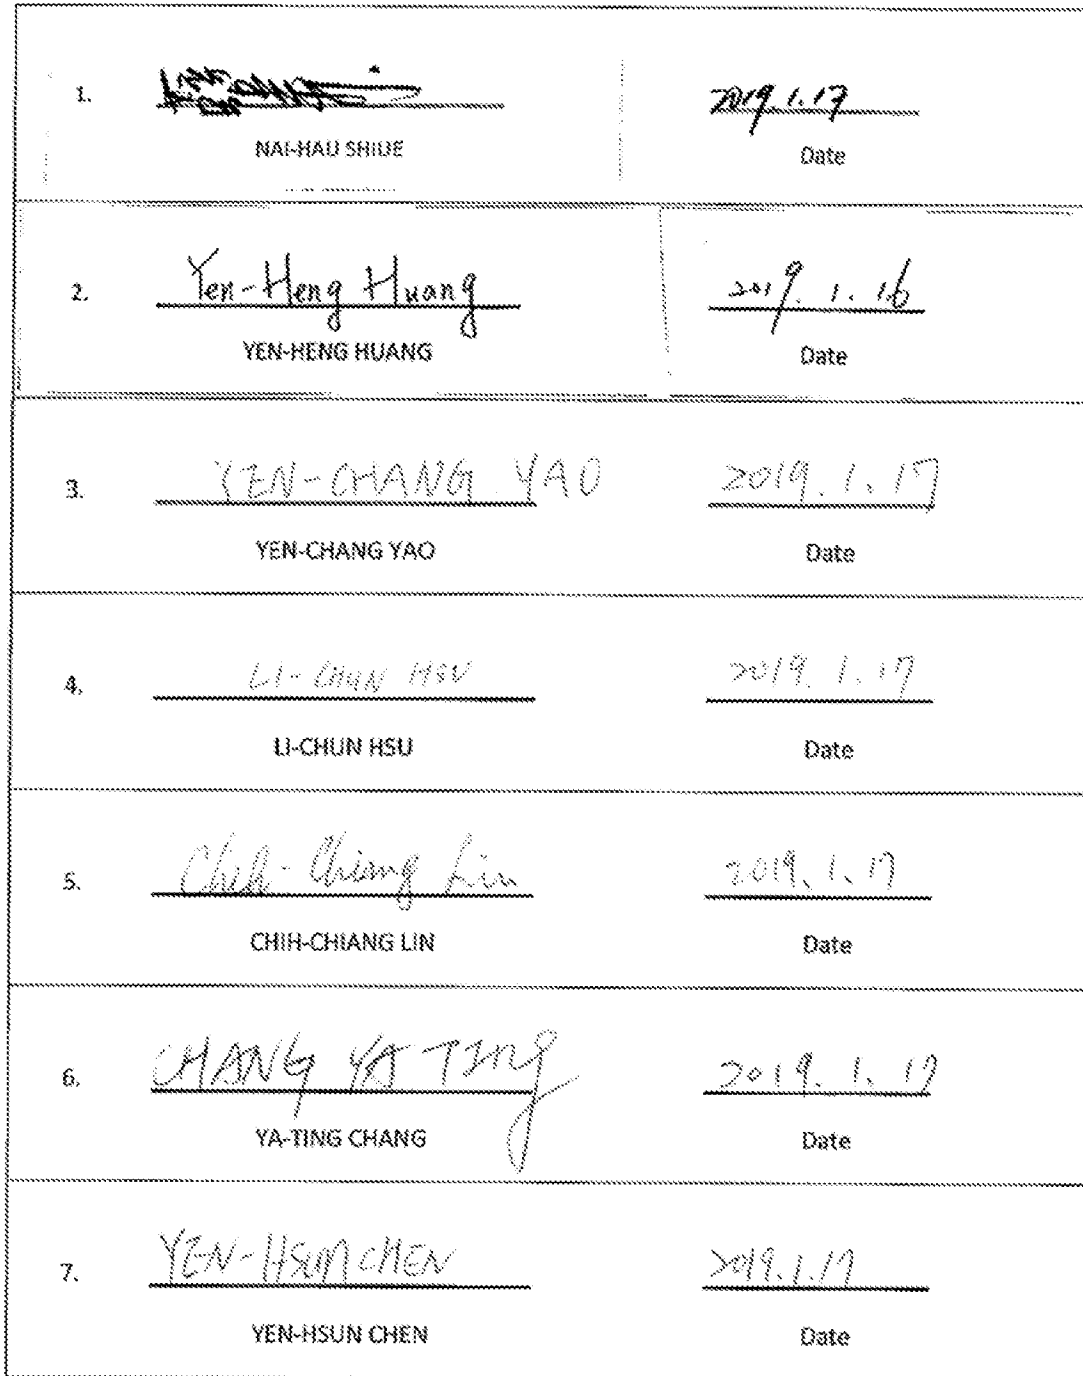 1. 2019.1.17
NAI-HAU SHIUE Date
2. Yen-Heng Huang 2019.1.16
YEN-HENG HUANG Date
3. YEN-CHANG YAO 2019.1.17
YEN-CHANG YAO Date
4. LI-CHUN HSU 2019.1.17
LI-CHUN HSU Date
5. Chih-Chiang Lin 2019.1.17
CHIH-CHIANG LIN Date
6. CHANG YA TING 2019.1.17
YA-TING CHANG Date
7. YEN-HSUN CHEN 2019.1.17
YEN-HSUN CHEN Date